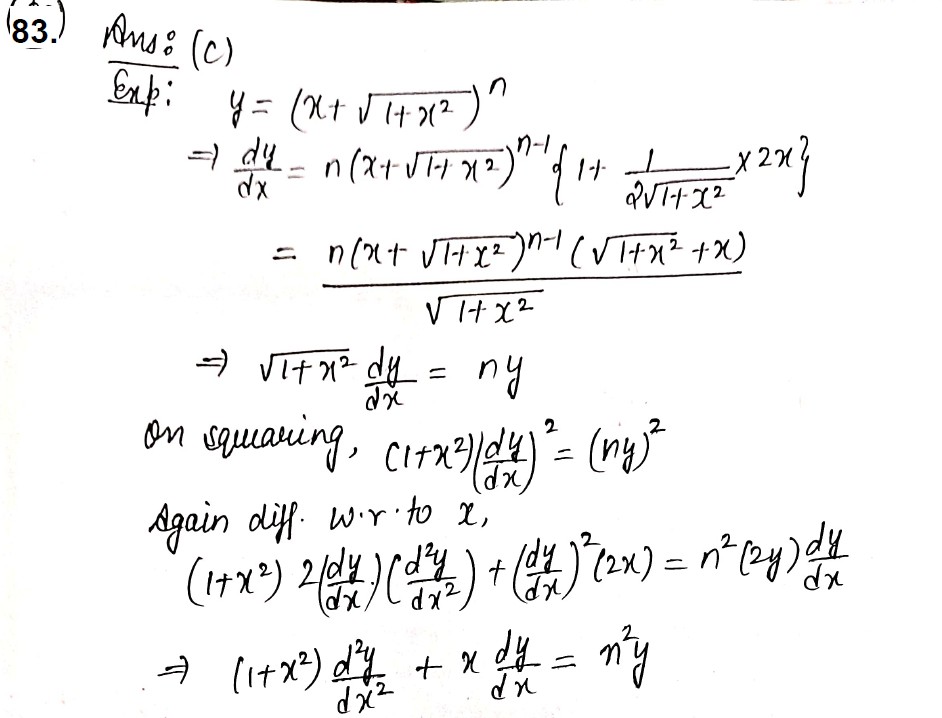 (83.) Ans: (c)
Exp: y = (x + √(1+x²))ⁿ
⇒ dy/dx = n(x + √(1+x²))ⁿ⁻¹ {1 + 1/(2√(1+x²)) × 2x}
= n(x + √(1+x²))ⁿ⁻¹ (√(1+x²) + x) / √(1+x²)
⇒ √(1+x²) dy/dx = ny
On squaring, (1+x²)(dy/dx)² = (ny)²
Again diff. w.r.to x,
(1+x²) 2(dy/dx)(d²y/dx²) + (dy/dx)²(2x) = n²(2y) dy/dx
⇒ (1+x²) d²y/dx² + x dy/dx = n²y